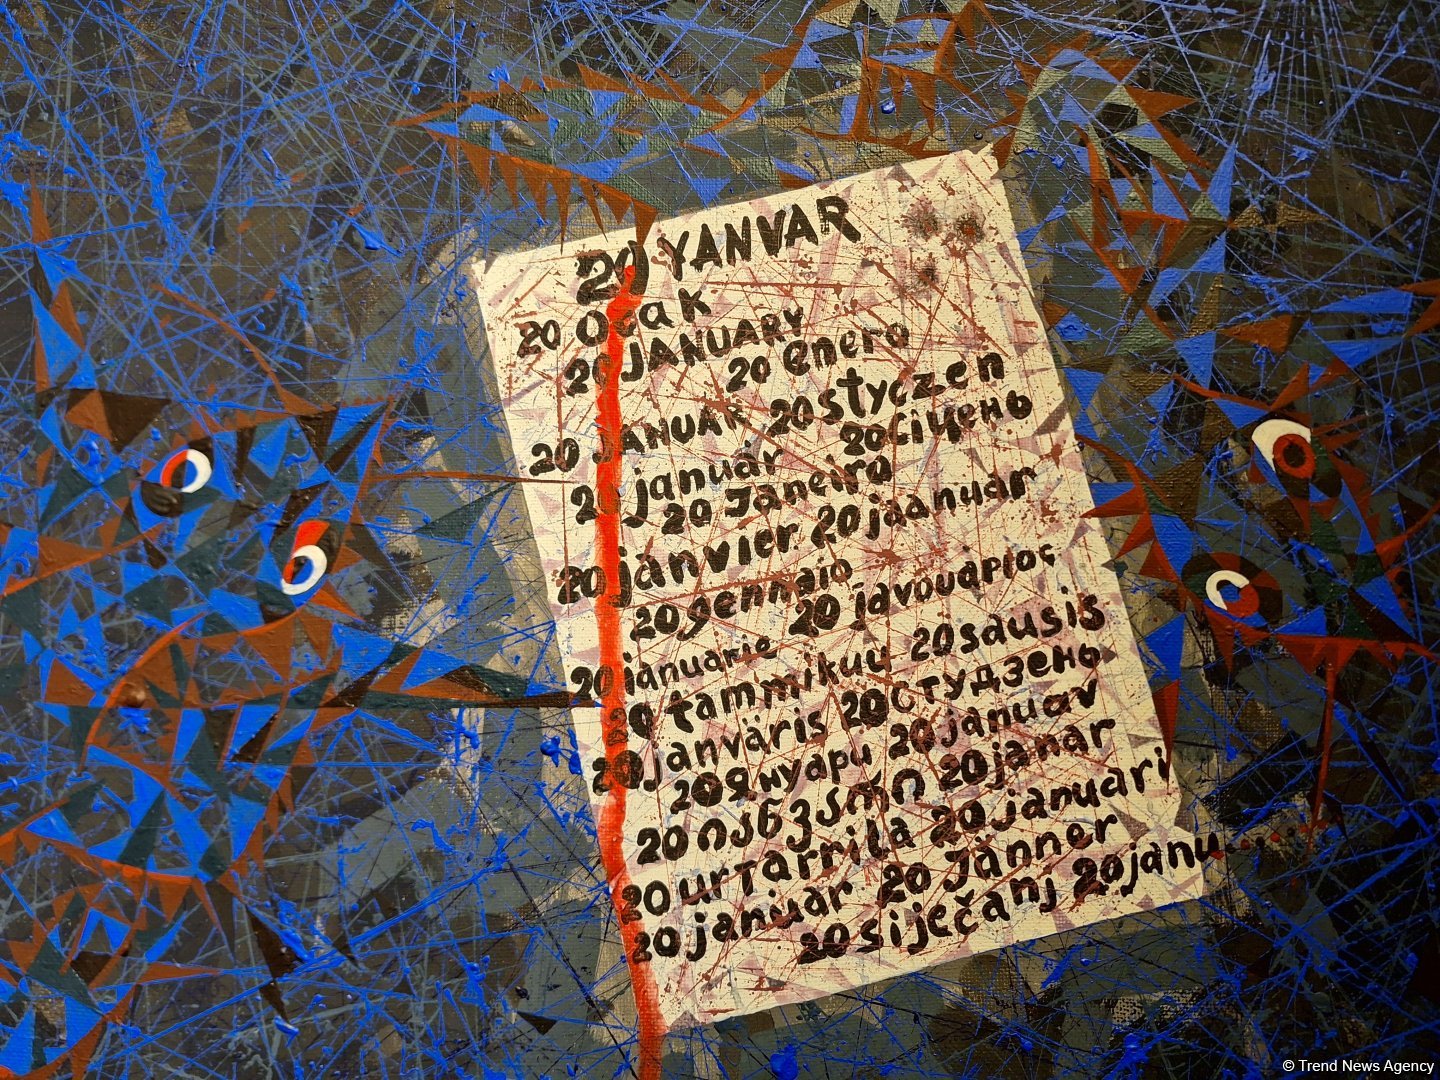 20 YANVAR
20 Ocak
20 JANUARY
20 enero
20 JANUAR 20 styczen
20 січень
20 január
20 Janeiro
20 janvier 20 jaanuar
20 gennaio
20 januario 20 ιανουάριος
20 tammikuu 20 sausis
20 janvāris 20 студзень
20 януари 20 januar
20 იანვარი 20 janar
20 urtarrila 20 januari
20 januar 20 Jänner
20 siječanj 20 janu.....
© Trend News Agency